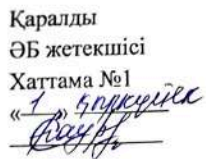 Қаралды
ӘБ жетекшісі
Хаттама №1
«1» қыркүйек